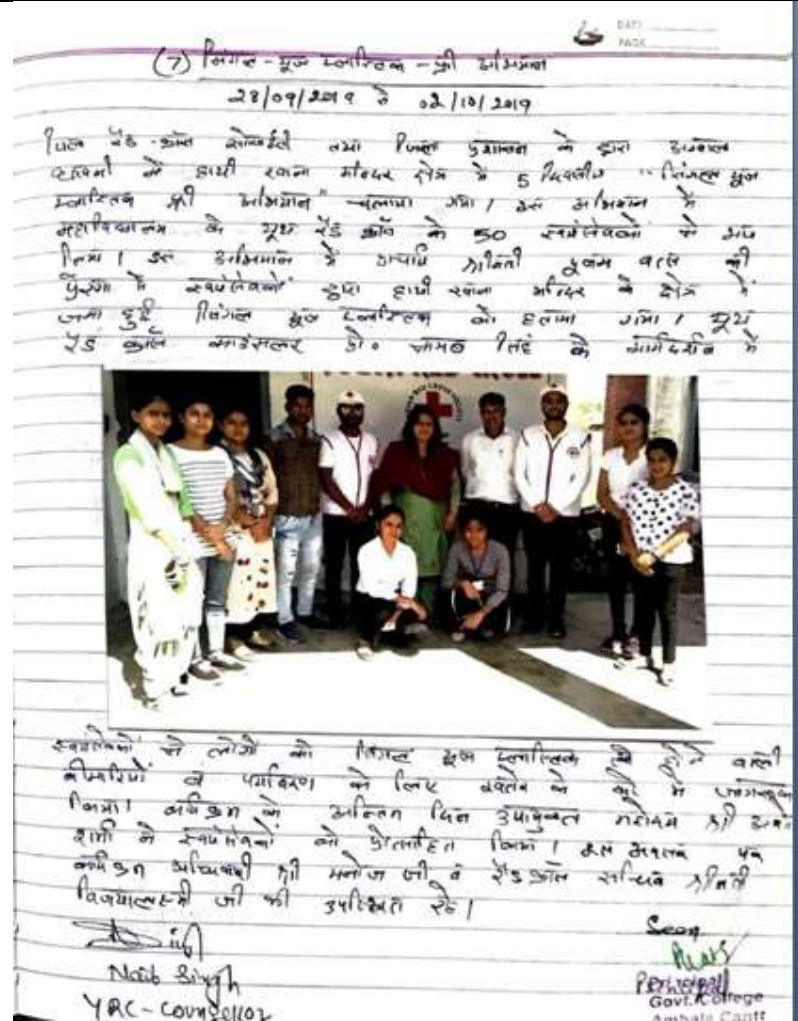 DATE
PAGE
(7) सिंगल - यूज प्लास्टिक - फ्री अभियान
28/09/2019 से 02/10/2019
जिला रैड-क्रॉस सोसाईटी तथा जिला प्रशासन के द्वारा अम्बाला
छावनी के हाथी खाना मन्दिर क्षेत्र में 5 दिवसीय "सिंगल यूज
प्लास्टिक फ्री अभियान" चलाया गया। इस अभियान में
महाविद्यालय के यूथ रैड क्रॉस के 50 स्वयंसेवकों ने भाग
लिया। इस अभियान में प्राचार्या श्रीमती पूनम वत्स की
प्रेरणा से स्वयंसेवकों द्वारा हाथी खाना मन्दिर के क्षेत्र में
जमा हुई सिंगल यूज प्लास्टिक को हटाया गया। यूथ
रैड क्रॉस काउंसलर डॉ० नायब सिंह के मार्गदर्शन में
स्वयंसेवकों ने लोगों को सिंगल यूज प्लास्टिक से होने वाली
बीमारियों व पर्यावरण के लिए खतरे के बारे में जागरूक
किया। कार्यक्रम के अन्तिम दिन उपायुक्त महोदय श्री अशोक
शर्मा ने स्वयंसेवकों को प्रोत्साहित किया। इस अवसर पर
कार्यक्रम अधिकारी श्री मनोज जी व रैड क्रॉस सचिव श्रीमती
विजयालक्ष्मी जी की उपस्थिति रही।
Naib Singh
YRC - Counsellor
Seen
Principal
Govt. College
Ambala Cantt